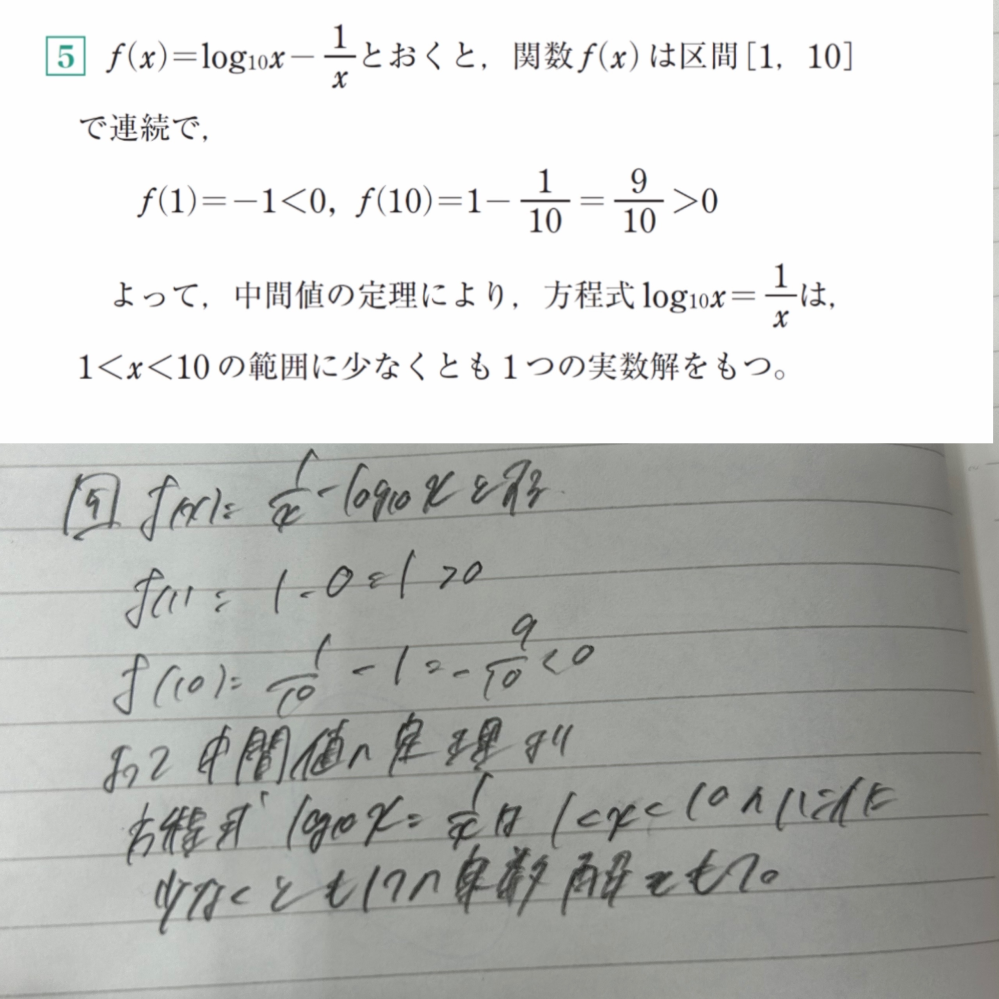 5 f(x)=log₁₀x－1/xとおくと，関数f(x)は区間[1, 10]
で連続で，
f(1)=－1<0, f(10)=1－1/10=9/10>0
よって，中間値の定理により，方程式log₁₀x=1/xは，
1<x<10の範囲に少なくとも1つの実数解をもつ。
5 f(x)= 1/x - log₁₀x とする
f(1)= 1-0=1>0
f(10)= 1/10 - 1=-9/10<0
よって中間値の定理より
方程式 log₁₀x=1/xは 1<x<10の
少なくとも1つの実数解をもつ。